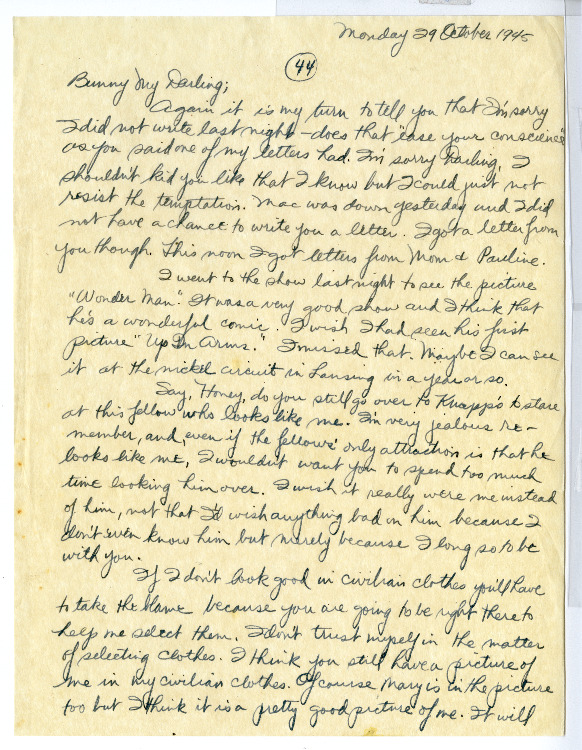 Monday 29 October 1945
44
Bunny My Darling;
Again it is my turn to tell you that I'm sorry
I did not write last night - does that "ease your conscience"
as you said one of my letters had. I'm sorry Darling, I
shouldn't kid you like that I know but I could just not
resist the temptation. Mac was down yesterday and I did
not have a chance to write you a letter. I got a letter from
you though. This noon I got letters from Mom & Pauline.
I went to the show last night to see the picture
"Wonder Man". It was a very good show and I think that
he's a wonderful comic. I wish I had seen his first
picture "Up In Arms." I missed that. Maybe I can see
it at the nickel circuit in Lansing in a year or so.
Say, Honey, do you still go over to Knapp's to stare
at this fellow who looks like me. I'm very jealous re-
member, and even if the fellows' only attraction is that he
looks like me, I wouldn't want you to spend too much
time looking him over. I wish it really were me instead
of him, not that I'd wish anything bad on him because I
don't even know him but merely because I long so to be
with you.
If I don't look good in civilian clothes you'll have
to take the blame because you are going to be right there to
help me select them. I don't trust myself in the matter
of selecting clothes. I think you still have a picture of
me in my civilian clothes. Of course Mary is in the picture
too but I think it is a pretty good picture of me. It will